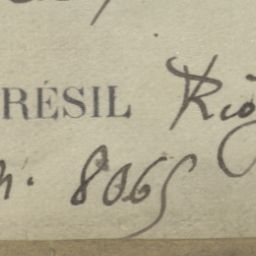 RÉSIL Rio
n. 8065